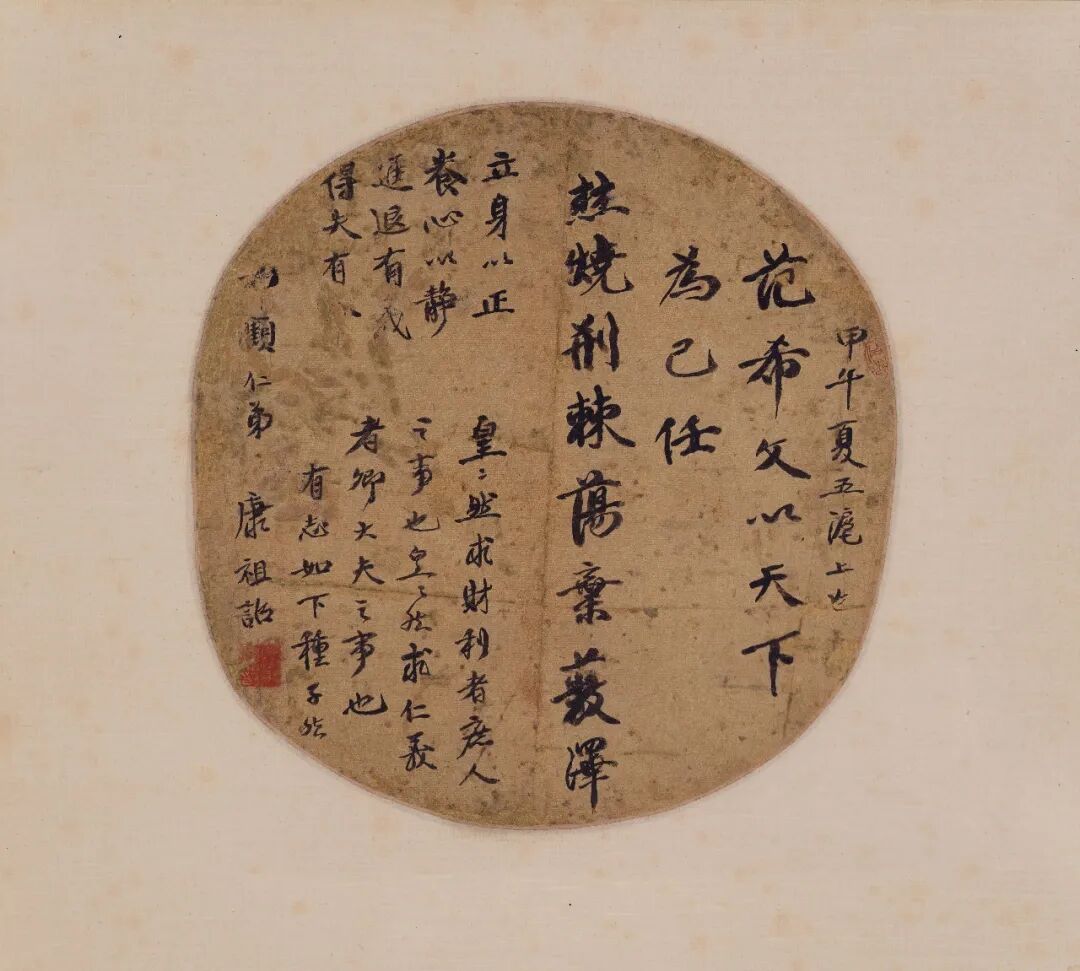 甲午夏五滬上
范希文以天下
為己任
燒荆棘蕩棄藪澤
立身以正
養心以静
進退有
得失有
皇〻然求財利者庶人
之事也皇〻然求仁義
者卿大夫之事也
有志如下種子然
仁弟 康祖詒